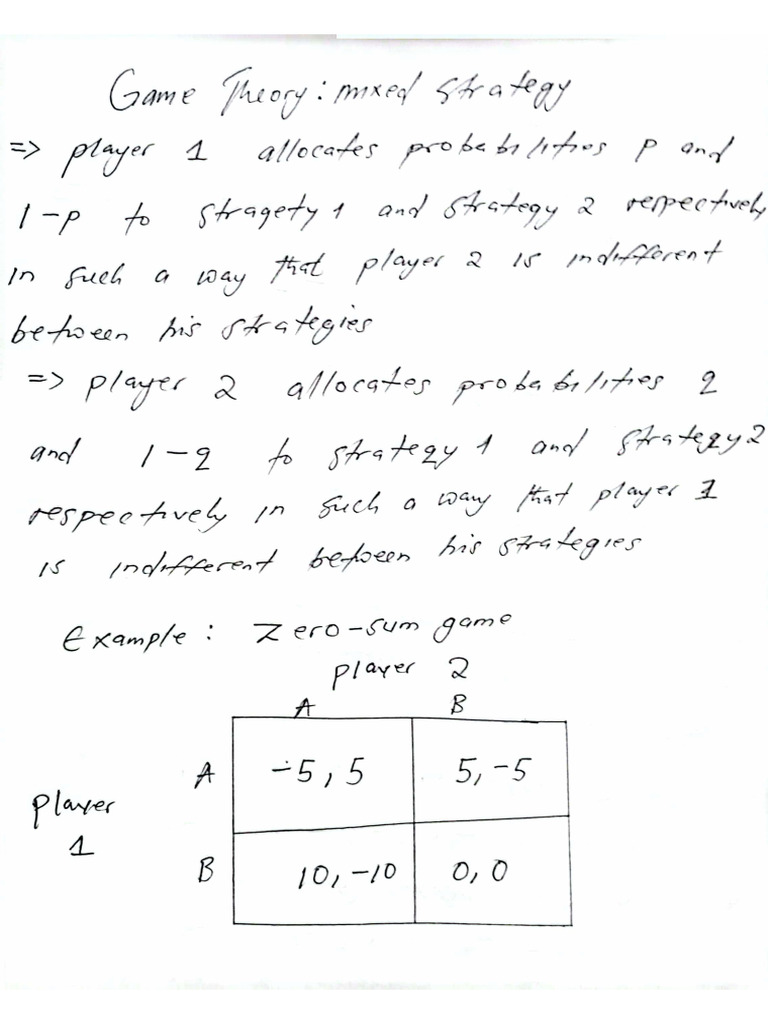 Game Theory: mixed strategy
=> player 1 allocates probabilities p and
1-p to stragety 1 and strategy 2 respectively
in such a way that player 2 is indifferent
between his strategies
=> player 2 allocates probabilities q
and 1-q to strategy 1 and strategy 2
respectively in such a way that player 1
is indifferent between his strategies
Example: Zero-sum game
player 2
A B
A -5, 5 5, -5
player
1
B 10, -10 0, 0